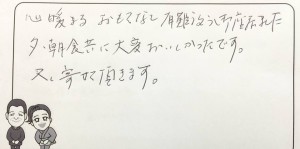 心暖まる おもてなし 有難うございました
夕・朝食共に大変おいしかったです。
又、寄せて頂きます。